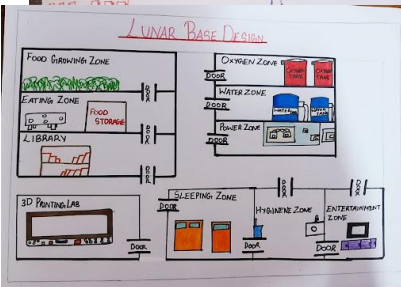 LUNAR BASE DESIGN
FOOD GROWING ZONE
DOOR
EATING ZONE
FOOD
STORAGE
DOOR
LIBRARY
DOOR
OXYGEN ZONE
OXYGEN
TANK
OXYGEN
TANK
DOOR
WATER ZONE
WATER
WATER
DOOR
POWER ZONE
DOOR
3D PRINTING LAB
DOOR
SLEEPING ZONE
DOOR
DOOR
HYGINENE ZONE
DOOR
DOOR
ENTERTAINMENT
ZONE
DOOR